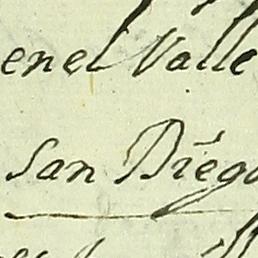 enel Valle
San Diego